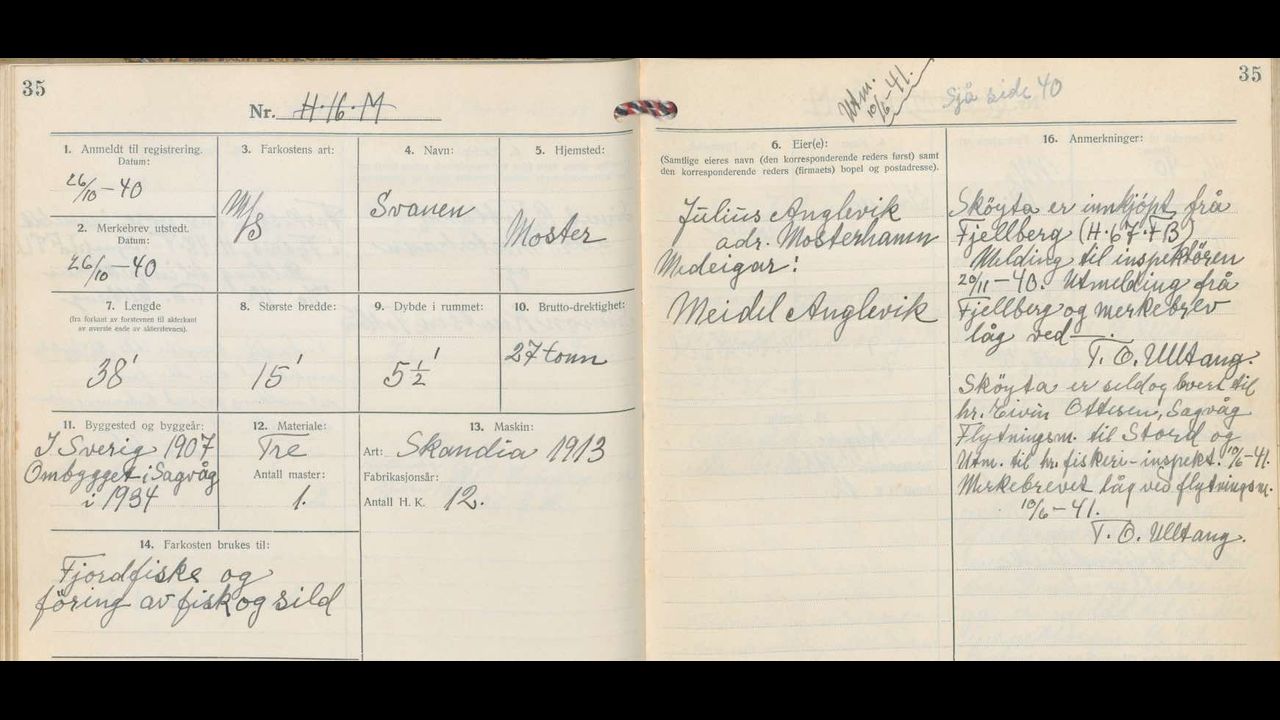 35
Nr. H·16·M
1. Anmeldt til registrering.
Datum:
26/10 – 40
2. Merkebrev utstedt.
Datum:
26/10 – 40
3. Farkostens art:
M/S
4. Navn:
Svanen
5. Hjemsted:
Moster
7. Lengde
(fra forkant av forstevnen til akterkant
av øverste ende av akterstevnen).
38'
8. Største bredde:
15'
9. Dybde i rummet:
5 1/2'
10. Brutto-drektighet:
27 tonn
11. Byggested og byggeår:
I Sverig 1907
Ombygget i Sagvåg
i 1934
12. Materiale:
Tre
Antall master:
1.
13. Maskin:
Art: Skandia 1913
Fabrikasjonsår:
Antall H. K. 12.
14. Farkosten brukes til:
Fjordfiske og
föring av fisk og sild
Utm.
10/6-41.
Sjå side 40
35
6. Eier(e):
(Samtlige eieres navn (den korresponderende reders først) samt
den korresponderende reders (firmaets) bopel og postadresse).
Julius Anglevik
adr. Mosterhamn
Medeigar:
Meidel Anglevik
16. Anmerkninger:
Sköyta er innkjöpt frå
Fjellberg (H·67·FB)
Melding til inspektören
20/11 – 40. Utmelding frå
Fjellberg og merkebrev
låg ved —.
T. O. Ulltang.
Sköyta er seld og levert til
hr. Eivin Ottesen, Sagvåg
Flytningsm. til Stord og
Utm. til hr. fiskeri-inspekt. 10/6-41.
Merkebrevet låg ved flytningsm.
10/6 – 41.
T. O. Ulltang.